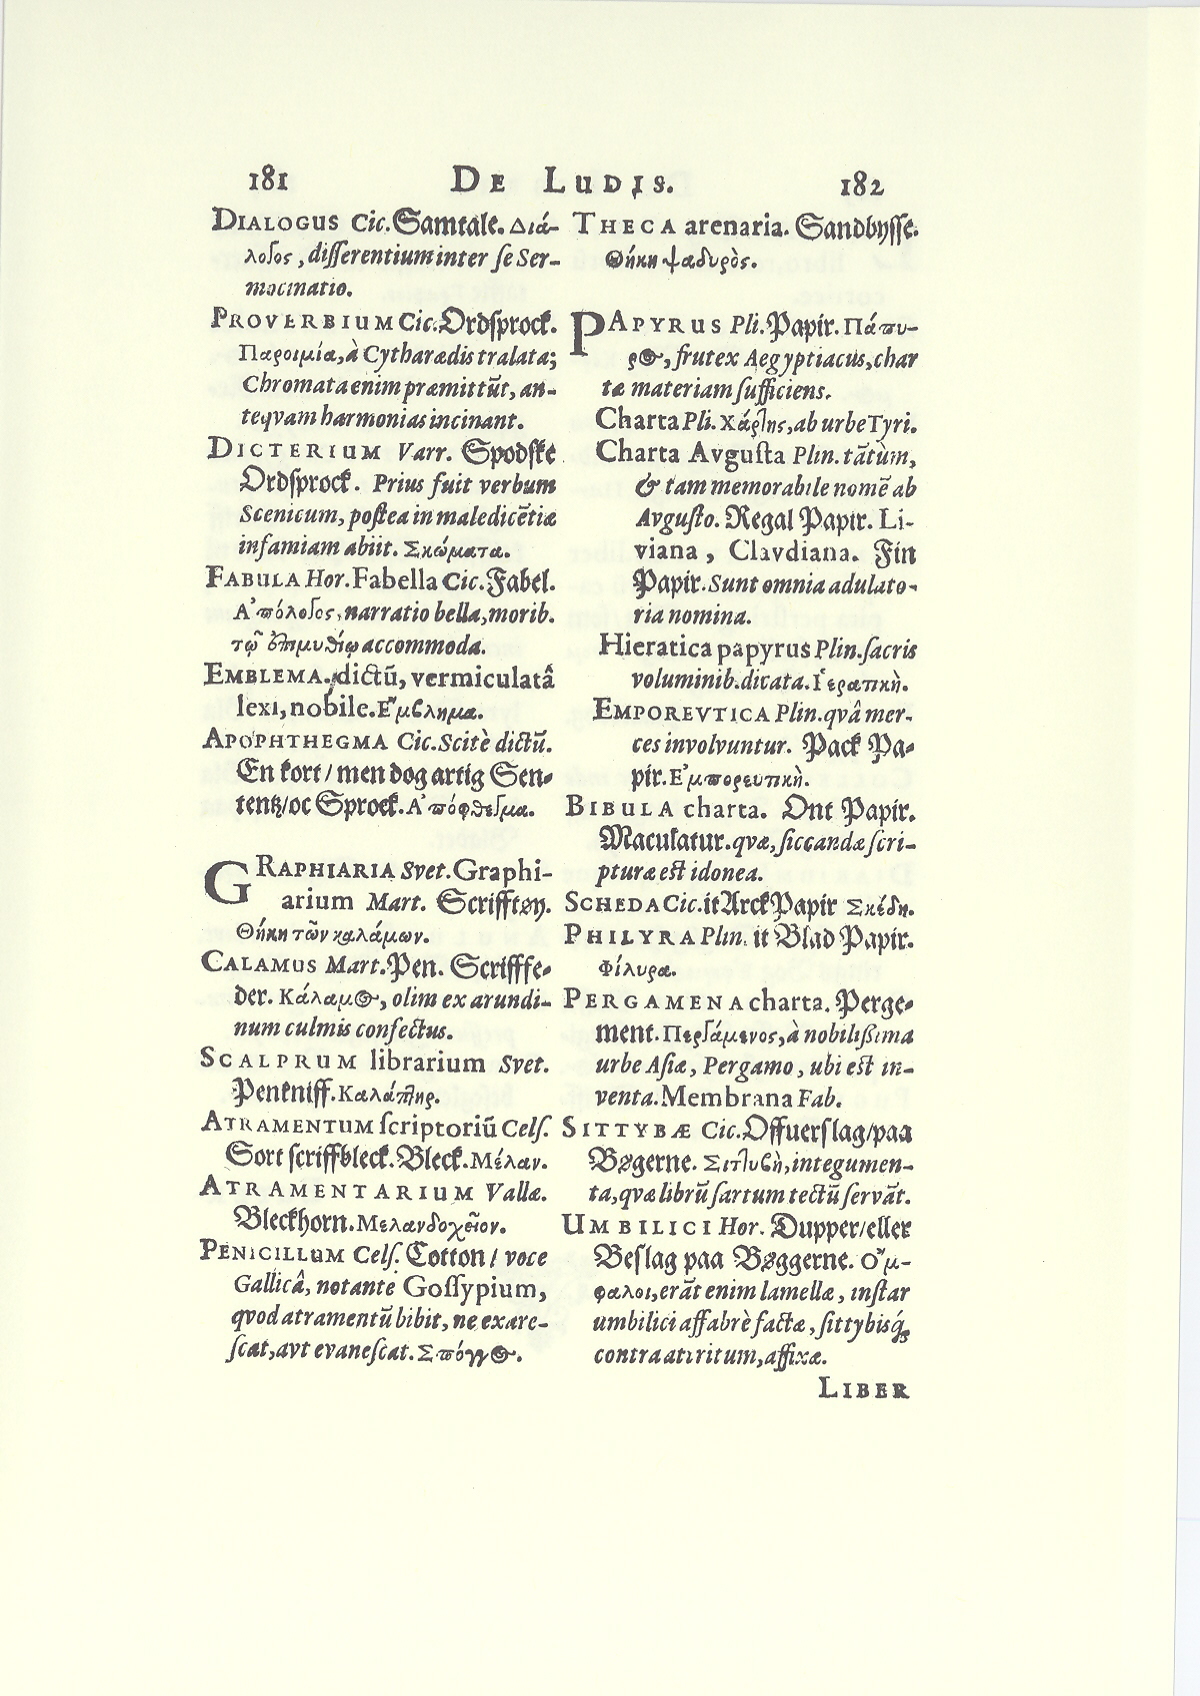 181 DE LUDIS. 182
DIALOGUS Cic. Samtale. Διά-
λογος, differentium inter se Ser-
mocinatio.
PROVERBIUM Cic. Ordsprock.
Παροιμία, à Cytharædis tralata;
Chromata enim præmittūt, an-
teqvam harmonias incinant.
DICTERIUM Varr. Spodske
Ordsprock. Prius fuit verbum
Scenicum, postea in maledicētiæ
infamiam abiit. Σκώματα.
FABULA Hor. Fabella Cic. Fabel.
Α᾿πόλογος, narratio bella, morib.
τῷ ἐπιμυθίῳ accommoda.
EMBLEMA, dictū, vermiculatâ
lexi, nobile. Ε῎μβλημα.
APOPHTHEGMA Cic. Scitè dictū.
En kort/ men dog artig Sen-
tentz/oc Sprock. Α᾿πόφθεγμα.
GRAPHIARIA Svet. Graphi-
arium Mart. Scrifftøy.
Θήκη τῶν καλάμων.
CALAMUS Mart. Pen. Scrifffe-
der. Κάλαμος, olim ex arundi-
num culmis confectus.
SCALPRUM librarium Svet.
Penkniff. Καλάπης.
ATRAMENTUM scriptoriū Cels.
Sort scriffbleck. Bleck. Μέλαν.
ATRAMENTARIUM Vallæ.
Bleckhorn. Μελανδοχεῖον.
PENICILLUM Cels. Cotton/ voce
Gallicâ, notante Gossypium,
qvod atramentū bibit, ne exare-
scat, avt evanescat. Σπόγγος.
THECA arenaria. Sandbysse.
Θήκη ψαδυρὸς.
PAPYRUS Pli. Papir. Πάπυ-
ρος, frutex Aegyptiacus, char
tæ materiam sufficiens.
Charta Pli. Χάρτης, ab urbe Tyri.
Charta Avgusta Plin. tātùm,
& tam memorabile nomē ab
Avgusto. Regal Papir. Li-
viana, Clavdiana. Fin
Papir. Sunt omnia adulato-
ria nomina.
Hieratica papyrus Plin. sacris
voluminib. dicata. Ι῾ερατικὴ.
EMPOREVTICA Plin. qvâ mer-
ces involvuntur. Pack Pa-
pir. Ε᾿μπορευτικὴ.
BIBULA charta. Ont Papir.
Maculatur. qvæ, siccandæ scri-
pturæ est idonea.
SCHEDA Cic. it Arck Papir Σκέδη.
PHILYRA Plin. it Blad Papir.
Φίλυρα.
PERGAMENA charta. Perge-
ment. Περγάμενος, à nobilißima
urbe Asiæ, Pergamo, ubi est in-
venta. Membrana Fab.
SITTYBÆ Cic. Offuerslag/paa
Bøgerne. Σιτυβὴ, integumen-
ta, qvæ librū sartum tectū servāt.
UMBILICI Hor. Dupper/eller
Beslag paa Bøggerne. Ο῎μ-
φαλοι, erāt enim lamellæ, instar
umbilici affabrè factæ, sittybisq́;
contra atıritum, affixæ.
LIBER